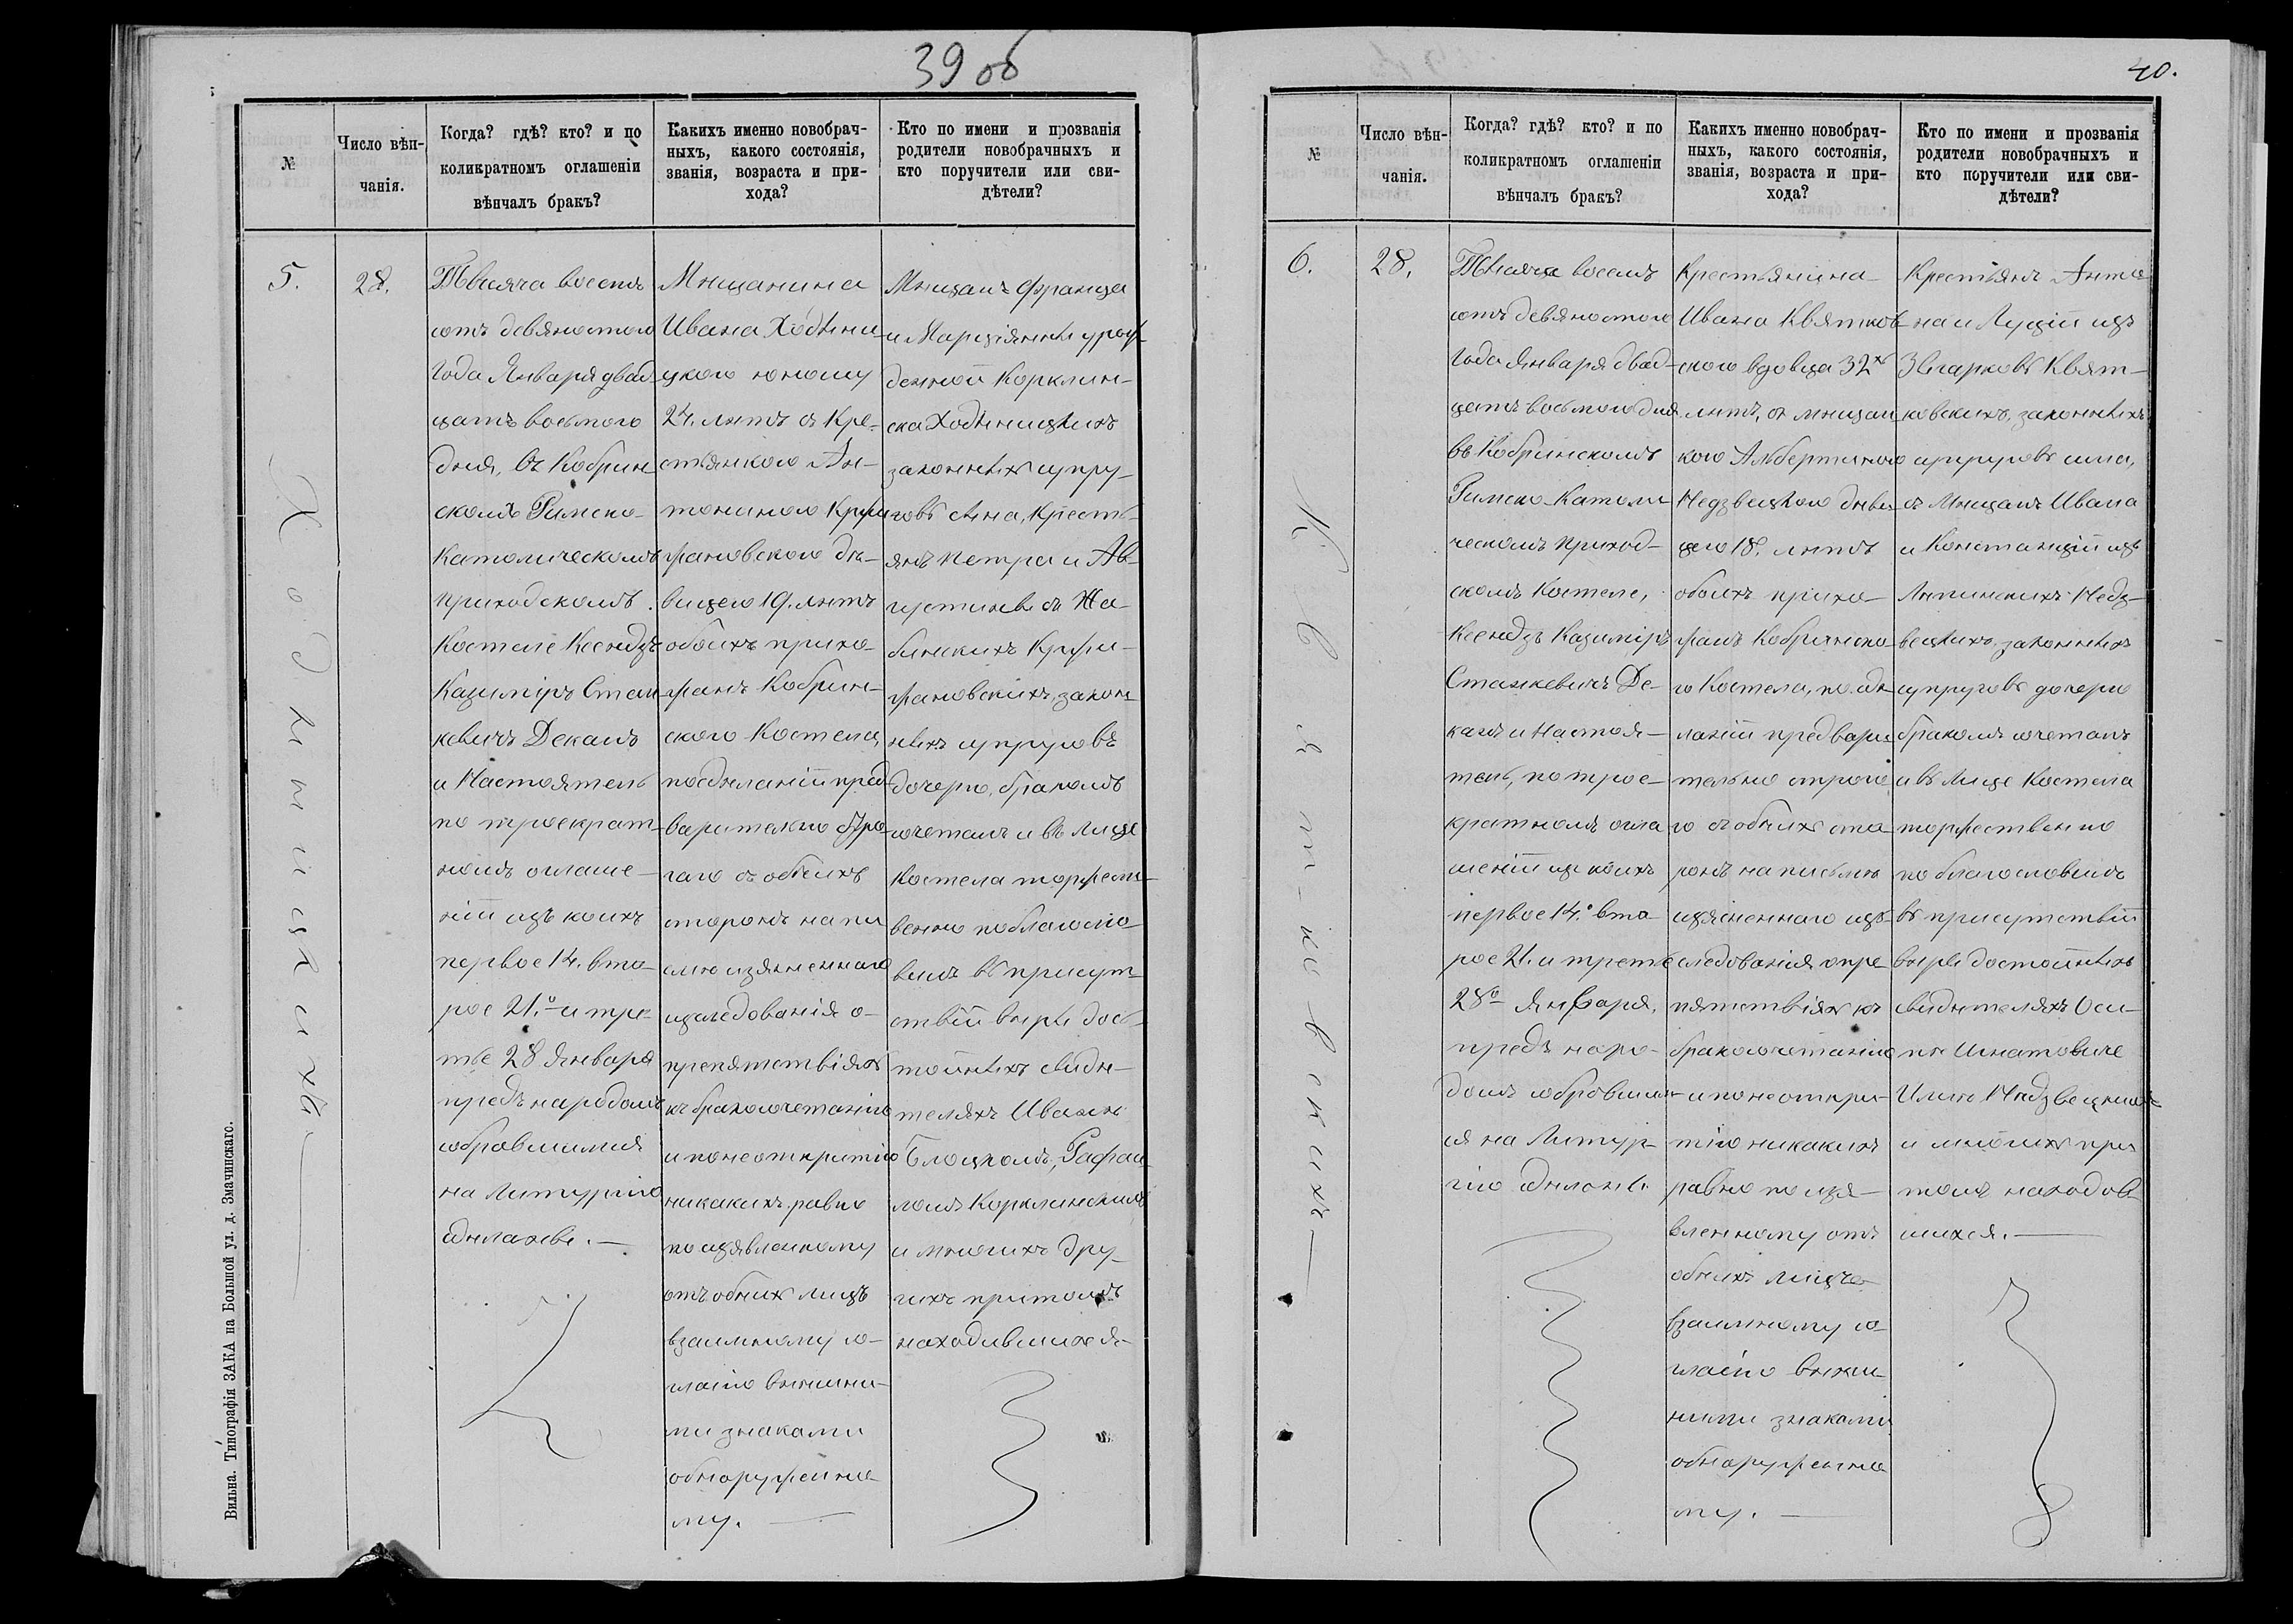 39 об
№
Число вѣн-
чанія.
Когда? гдѣ? кто? и по
коликратномъ оглашеніи
вѣнчалъ бракъ?
Какихъ именно новобрач-
ныхъ, какого состоянія,
званія, возраста и при-
хода?
Кто по имени и прозванія
родители новобрачныхъ и
кто поручители или сви-
дѣтели?
5.
Ходыницкихъ
28.
Тысяча восемь
сотъ девяностого
Года Января двад
цать восьмого
дня, въ Кобрин
скомъ Римско-
Католическомъ
приходскомъ
Костеле Ксендзъ
Казиміръ Стан
кевичъ Деканъ
и Настоятель
по троекрат-
номъ оглаше-
ніи изъ коихъ
первое 14. вто-
рое 21.о и тре-
тье 28 Января
предъ народомъ
собравшимся
на Литургію
сдѣланы.
Мѣщанина
Ивана Ходыни-
цкого юношу
24. лѣтъ съ Кре-
стьянкою Ан-
тониною
фановскою дѣ-
вицею 19. лѣтъ
обоихъ прихо-
жанъ Кобрин-
ского Костела,
по сдѣланіи пред
варительно стро-
гаго съ обѣихъ
сторонъ на пи
смѣ изясненнаго
изследованія о-
препятствіяхъ
къ бракосочетанію
и по неоткрытію
никакихъ равно
по изявленному
отъ обѣихъ лицъ
взаимному со-
гласію внѣшни-
ми знаками
обнаруженно-
му.
Мѣщанъ Франца
и Марціянны урож
денной Корклин-
ска Ходыницкихъ
законныхъ супру-
говъ сына, Кресть-
янъ Петра и Ав-
густины съ Жа-
бинскихъ
фановскихъ, закон-
ныхъ супруговъ
дочерю, бракомъ
сочеталъ и въ лице
Костела торжест-
венно поблагосло-
вилъ въ присут-
ствіи вѣры дос-
тойныхъ свидѣ-
теляхъ Иванѣ
Блоцкомъ, Рафаи
ломъ Корклинскимъ
и многихъ дру-
гихъ притомъ
находившихся.
Вильна. Типографія ЗАКА на Большой ул. д. Змачинскаго.
40.
№
Число вѣн-
чанія.
Когда? гдѣ? кто? и по
коликратномъ оглашеніи
вѣнчалъ бракъ?
Какихъ именно новобрач-
ныхъ, какого состоянія,
званія, возраста и при-
хода?
Кто по имени и прозванія
родители новобрачныхъ и
кто поручители или сви-
дѣтели?
6.
Квят-ковскихъ
28.
Тысяча восемь
сотъ девяностого
Года Января двад-
цать восьмого дня
въ Кобринскомъ
Римско-Католи
ческомъ приход-
скомъ Костеле,
Ксендзъ Казиміръ
Станкевичъ Де-
канъ и Настоя-
тель, по трое-
кратномъ огла
шеніи изъ коихъ
первое 14.о вто-
рое 21. и третье
28о Января,
предъ наро-
домъ собравшим-
ся на Литур-
гію сдѣланы.
Крестьянина
Ивана Квятков-
ского вдовца 32х
лѣтъ, съ мѣщан
кою Альбертиною
Недзвецкою дѣви-
цею 18. лѣтъ
обоихъ прихо-
жанъ Кобринско-
го Костела, по сдѣ-
ланіи предвари-
тельно строго
го съ обѣихъ сто-
ронъ на письмѣ
изясненнаго из-
следованія о пре-
пятствіяхъ къ
бракосочетанію
и по неоткры-
тію никакихъ
равно по изя-
вленному отъ
обѣихъ лицъ
взаимному со-
гласію внѣш-
ними знаками
обнаруженно
му.
Крестьянъ Анто
на и Луціи изъ
Квят-
ковскихъ, законныхъ
супруговъ сына,
съ Мѣщанъ Ивана
и Констанціи изъ
Липинскихъ Недз-
вецкихъ, законныхъ
супруговъ дочерю
бракомъ сочеталъ
и въ лице Костела
торжественно
поблагословилъ
въ присутствіи
вѣры достойныхъ
свидѣтеляхъ Оси-
пѣ Игнатовиче
Недзвецкимъ
и многихъ при
томъ находив-
шихся.